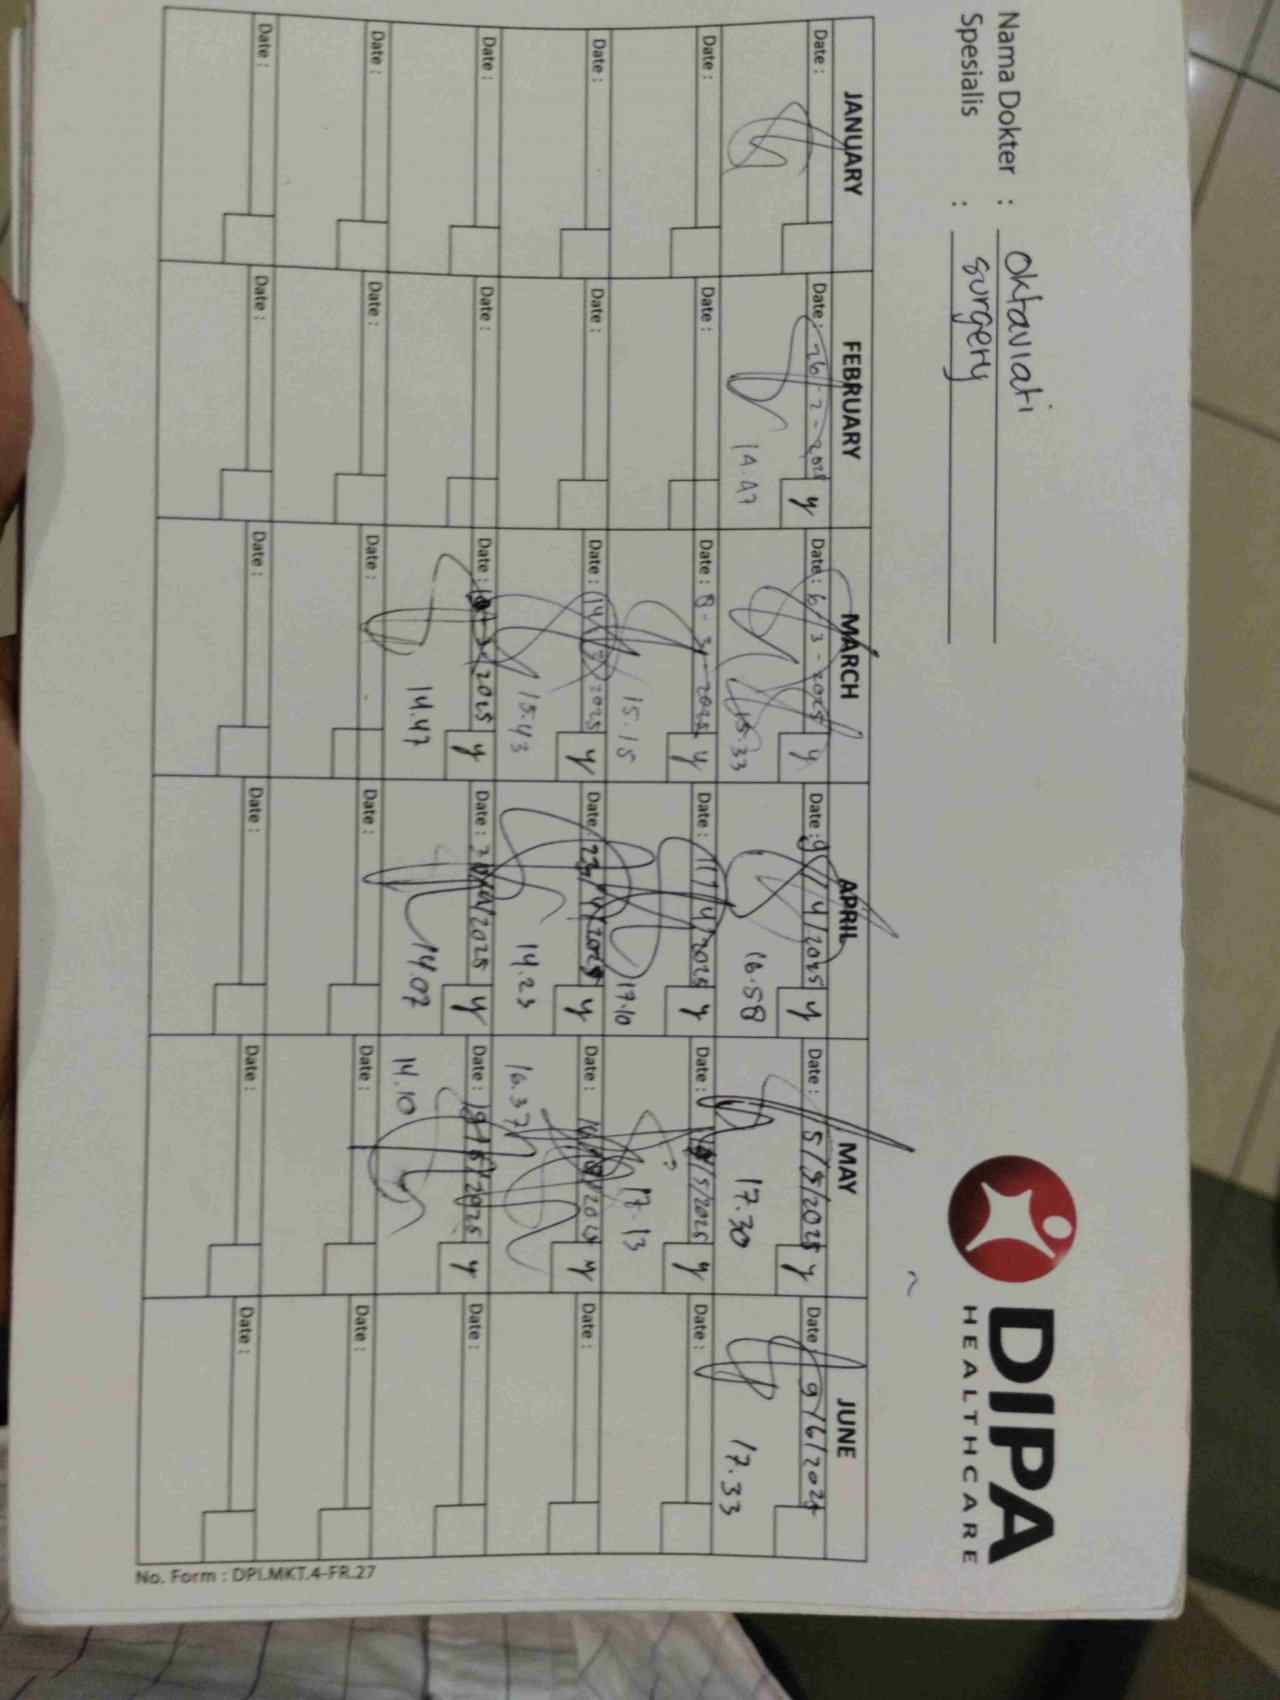 Nama Dokter : Oktaviati
Spesialis : surgery
DIPA
HEALTHCARE
JANUARY FEBRUARY MARCH APRIL MAY JUNE
Date : Date : 26-2-2025 y Date : 6-3-2025 y Date : 9/4/2025 y Date : 5/5/2025 y Date : 9/6/2025
14.47 15.33 16.58 17.30 17.33
Date : Date : Date : 8-3-2025 y Date : 11/4/2025 y Date : /5/2025 y Date :
15.15 17.10 17.13
Date : Date : Date : 14/3/2025 y Date : 23/4/2025 y Date : /2025 y Date :
15.43 14.23 16.37
Date : Date : Date : /2025 y Date : /2025 y Date : 19/5/2025 y Date :
14.47 14.07 14.10
Date : Date : Date : Date : Date : Date :
Date : Date : Date : Date : Date : Date :
No. Form : DPI.MKT.4-FR.27